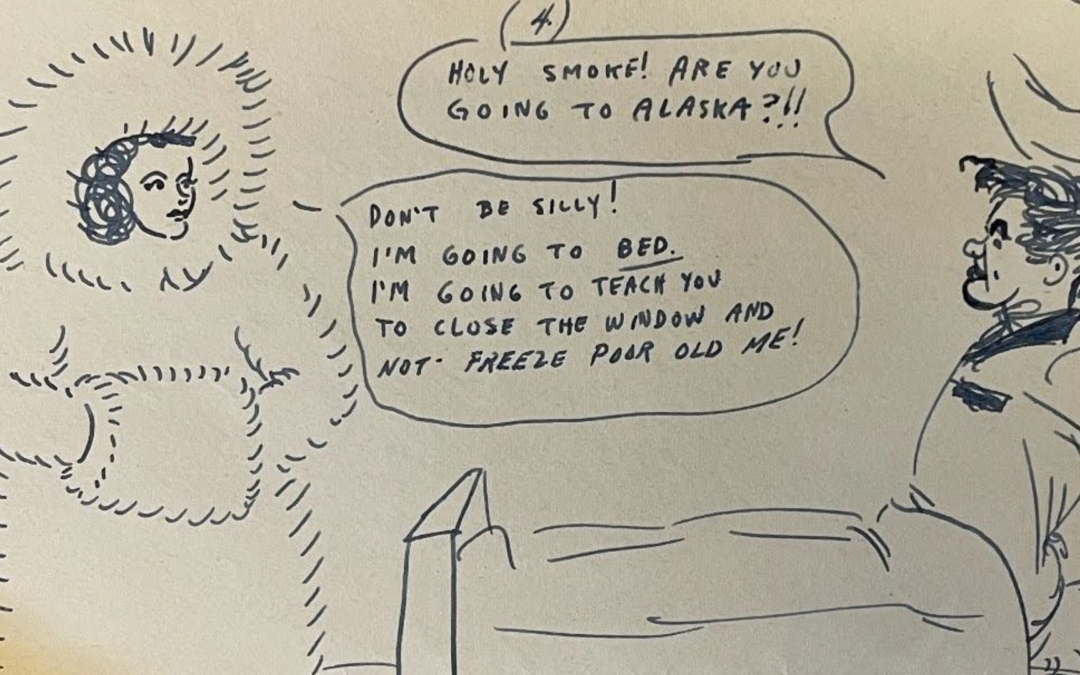 (4.)
HOLY SMOKE! ARE YOU
GOING TO ALASKA?!!
DON'T BE SILLY!
I'M GOING TO BED.
I'M GOING TO TEACH YOU
TO CLOSE THE WINDOW AND
NOT FREEZE POOR OLD ME!